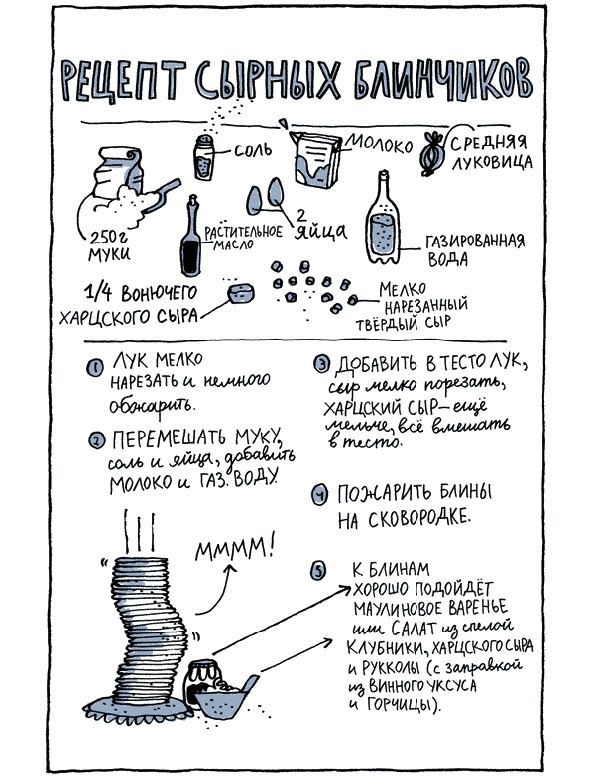 РЕЦЕПТ СЫРНЫХ БЛИНЧИКОВ
СОЛЬ
МОЛОКО
СРЕДНЯЯ
ЛУКОВИЦА
250 г
МУКИ
РАСТИТЕЛЬНОЕ
МАСЛО
2
ЯЙЦА
ГАЗИРОВАННАЯ
ВОДА
1/4 ВОНЮЧЕГО
ХАРЦСКОГО СЫРА
МЕЛКО
НАРЕЗАННЫЙ
ТВЁРДЫЙ СЫР
1 ЛУК МЕЛКО
НАРЕЗАТЬ и немного
обжарить.
2 ПЕРЕМЕШАТЬ МУКУ,
соль и яйца, добавить
МОЛОКО и ГАЗ. ВОДУ.
3 ДОБАВИТЬ В ТЕСТО ЛУК,
сыр мелко порезать,
ХАРЦСКИЙ СЫР – ещё
мельче, всё вмешать
в тесто.
4 ПОЖАРИТЬ БЛИНЫ
НА СКОВОРОДКЕ.
МММММ!
5 К БЛИНАМ
ХОРОШО ПОДОЙДЁТ
МАУЛИНОВОЕ ВАРЕНЬЕ
или САЛАТ из спелой
КЛУБНИКИ, ХАРЦСКОГО СЫРА
и РУККОЛЫ (с заправкой
из ВИННОГО УКСУСА
и ГОРЧИЦЫ).